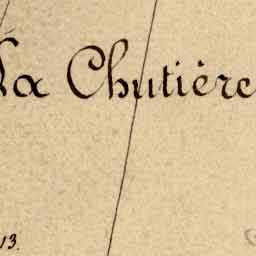 La Chutière
13.